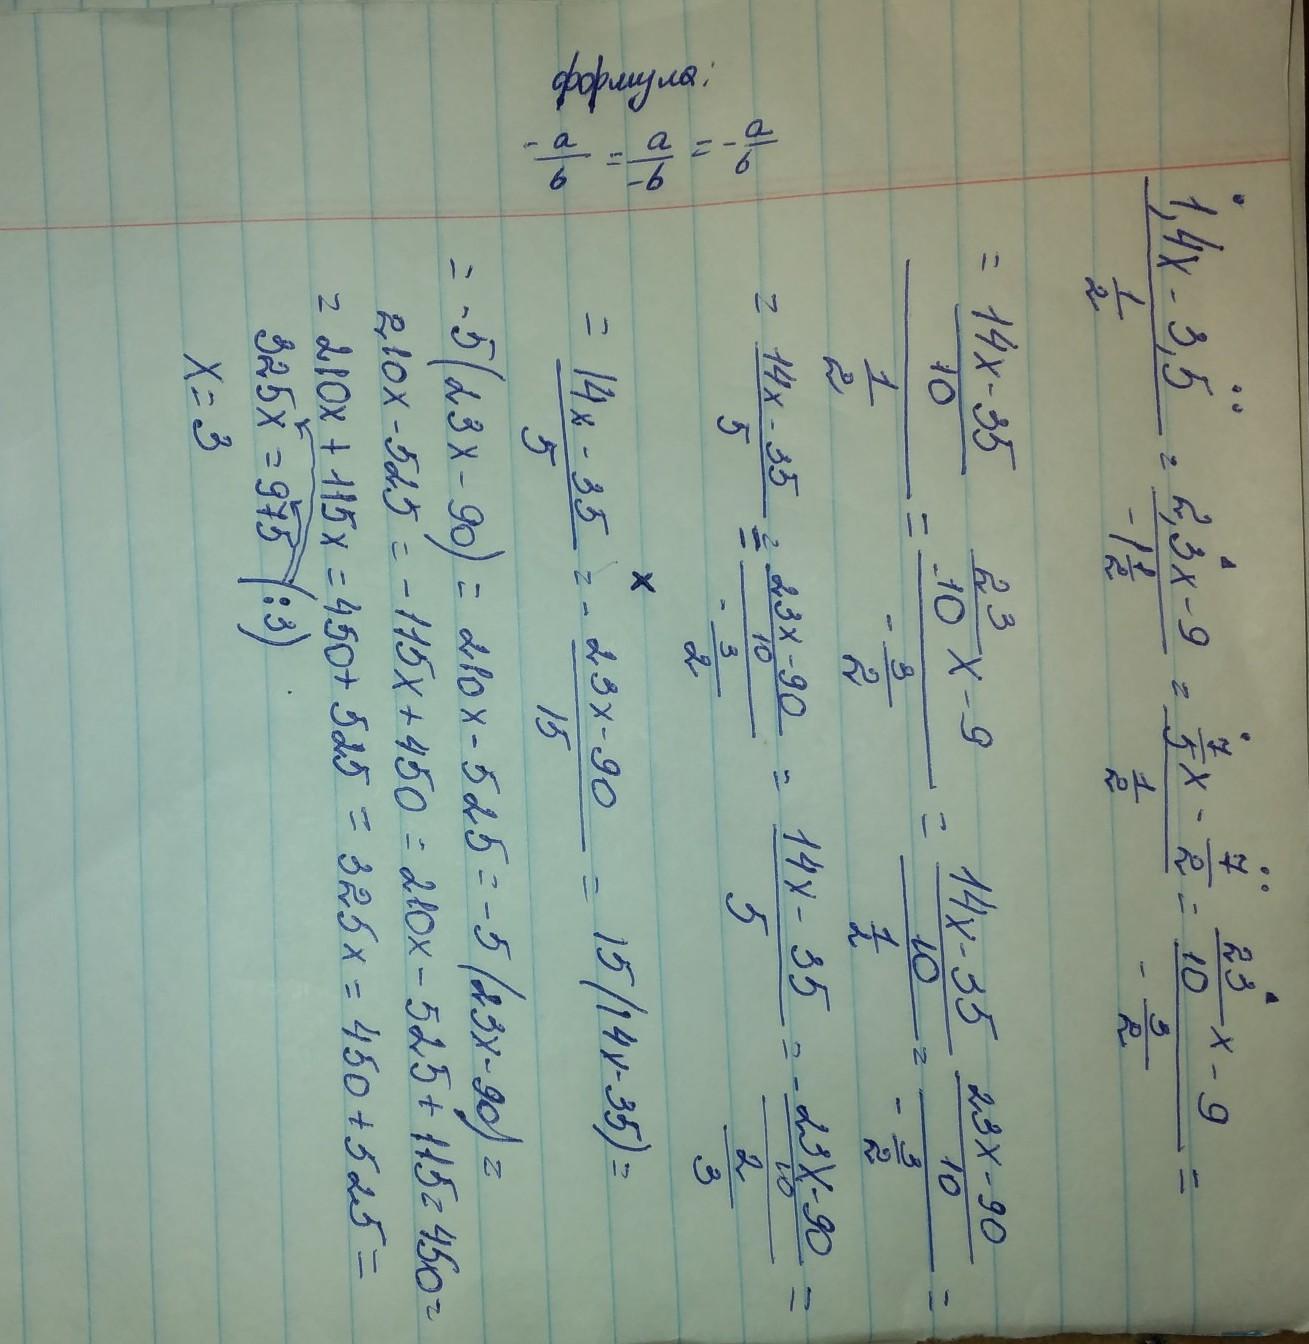 формула:
-a/b = a/-b = -a/b
(1,4x - 3,5)/(1/2) = (2,3x - 9)/(-1 1/2) = (7/5 x - 7/2)/(1/2) = (23/10 x - 9)/(-3/2) =
= ((14x - 35)/10)/(1/2) = (23/-10 x - 9)/(-3/2) = ((14x - 35)/10)/(1/2) = ((23x - 90)/10)/(-3/2) =
= (14x - 35)/5 = ((23x - 90)/10)/(-3/2) = (14x - 35)/5 = -((23x - 90)/10)/(2/3) =
x
= (14x - 35)/5 = -(23x - 90)/15 = 15(14x - 35) =
= -5(23x - 90) = 210x - 525 = -5(23x - 90) =
210x - 525 = -115x + 450 = 210x - 525 + 115 = 450 =
= 210x + 115x = 450 + 525 = 325x = 450 + 525 =
325x = 975 (:3)
x = 3